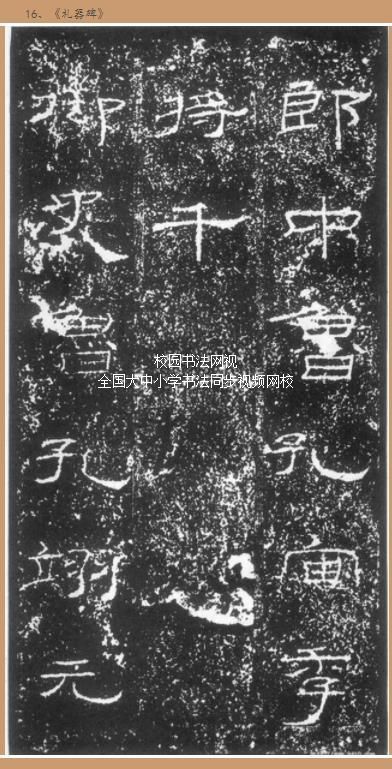 16、《礼器碑》
郎中魯孔宙季
將千
御史魯孔翊元
校园书法网视
全国大中小学书法同步视频网校